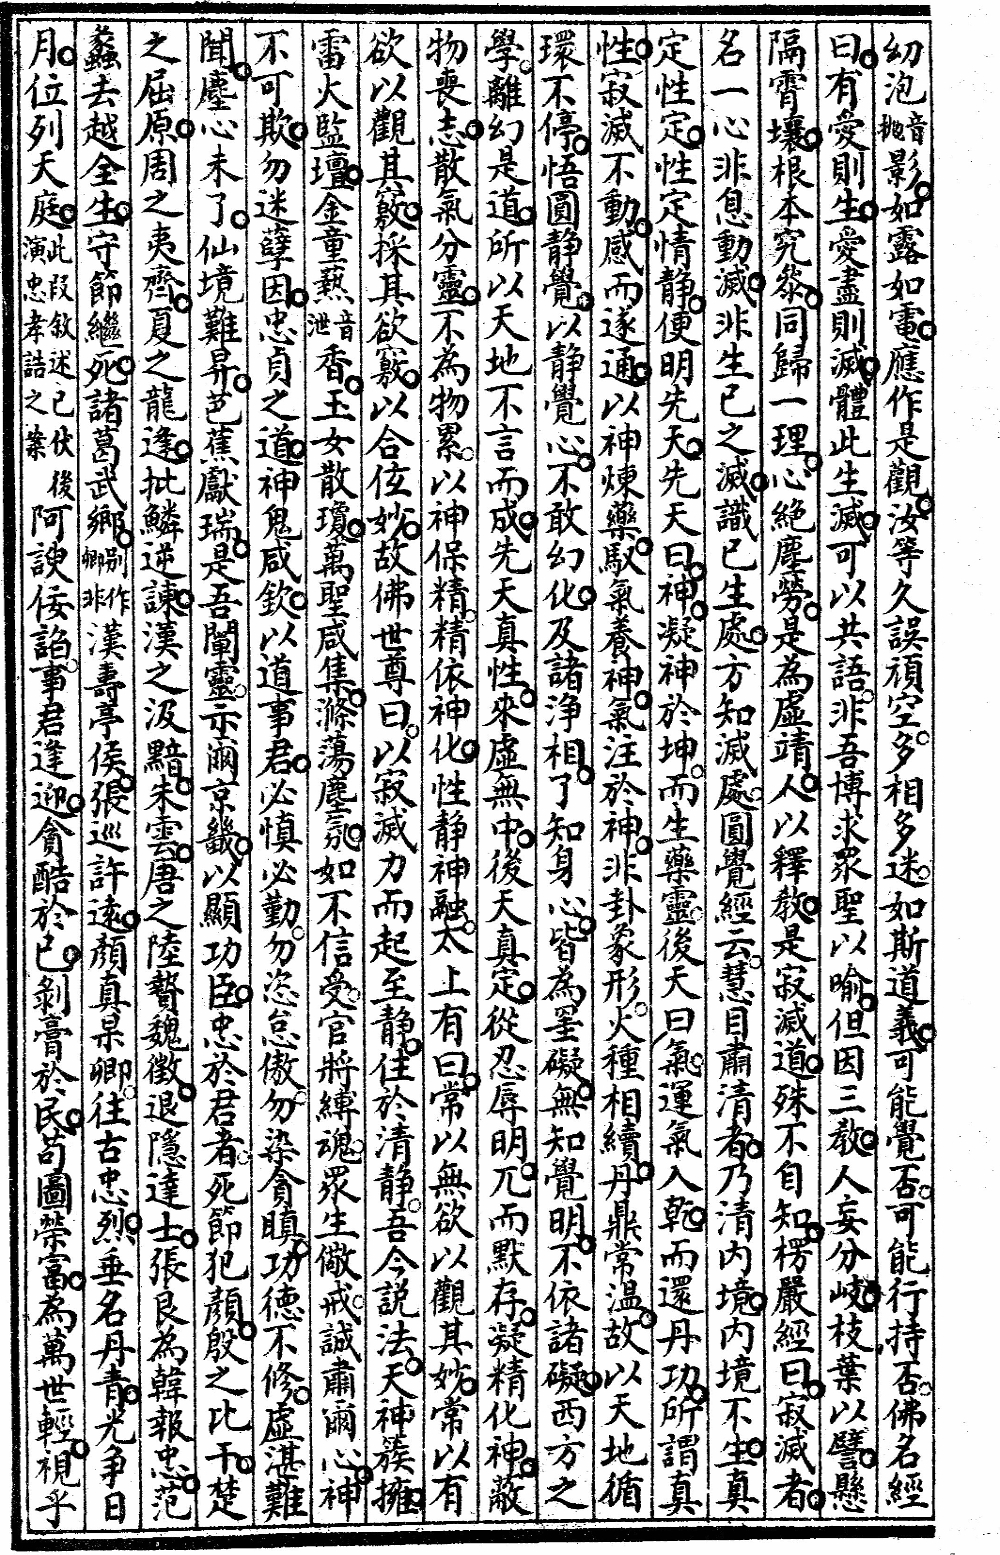 幻泡音拋影如露如電應作是觀汝等久誤頑空多相多迷如斯道義可能覺否可能行持否佛名經
曰有愛則生愛盡則滅體此生滅可以共語非吾博求眾聖以喻但因三教人妄分岐枝葉以譬懸
隔霄壤根本究參同歸一理心絕塵勞是為虛靖人以釋教是寂滅道殊不自知楞嚴經曰寂滅者
名一心非息動滅非生已之滅識已生處方知滅處圓覺經云慧目肅清者乃清內境內境不生真
定性定性定性定情靜便明先天先天曰神凝神於坤而生藥靈後天曰氣運氣入乾而還丹功所謂真
性寂滅不動感而遂通以神煉藥馭氣養神氣注於神非卦象形火種相續丹鼎常溫故以天地循
環不停悟圓靜覺以靜覺心不敢幻化及諸浄相了知身心皆為罣礙無知覺明不依諸礙西方之
學離幻是道所以天地不言而成先天真性來虛無中後天真定從忍辱明兀而默存凝精化神蔽
物喪志散氣分靈不為物累以神保精精依神化性靜神融太上有曰常以無欲以觀其妙常以有
欲以觀其竅採其欲竅以合伭妙故佛世尊曰以寂滅力而起至靜住於清靜吾今説法天神簇擁
雷火監壇金童爇音泄香玉女散瓊萬聖咸集滌蕩塵氛如不信受官將縛魂眾生儆戒誠肅爾心神
不可欺勿迷孽因忠貞之道神鬼咸欽以道事君必慎必勤勿恣怠傲勿染貪瞋功德不修虛湛難
聞塵心未了仙境難昇芭蕉獻瑞是吾闡靈示爾京畿以顯功臣忠於君者死節犯顏殷之比干楚
之屈原周之夷齊夏之龍逄批鱗逆諫漢之汲黯朱雲唐之陸贄魏徵退隱達士張良為韓報忠范
蠡去越全生守節繼死諸葛武鄉別作卿非漢壽亭侯張巡許遠顏真杲卿往古忠烈垂名丹青光争日
月位列天庭此叚敘述已伏後演忠孝誥之案阿諛佞諂事君逢迎貪酷於已剝膏於民苟圖榮富為萬世輕視乎